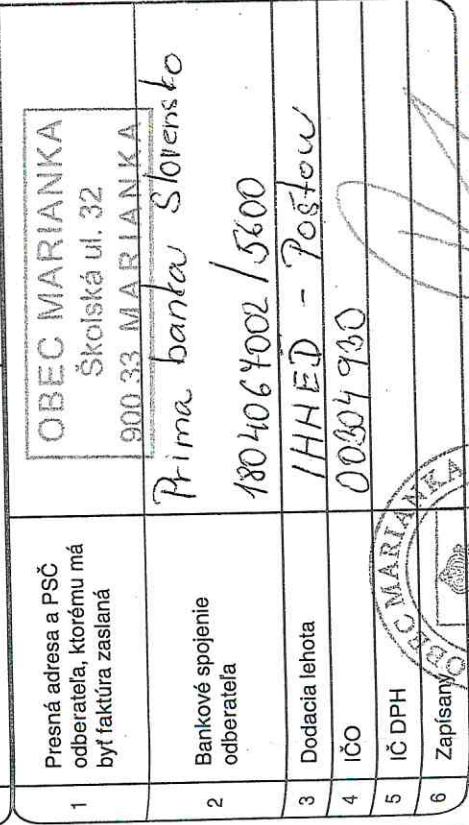 1 Presná adresa a PSČ
odberateľa, ktorému má
byť faktúra zaslaná
OBEC MARIANKA
Školská ul. 32
900 33 MARIANKA
2 Bankové spojenie
odberateľa
Prima banka Slovensko
1804067002/5600
3 Dodacia lehota
IHNEĎ - Poštou
4 IČO
00304930
5 IČ DPH
6 Zapísaný
OBEC MARIANKA